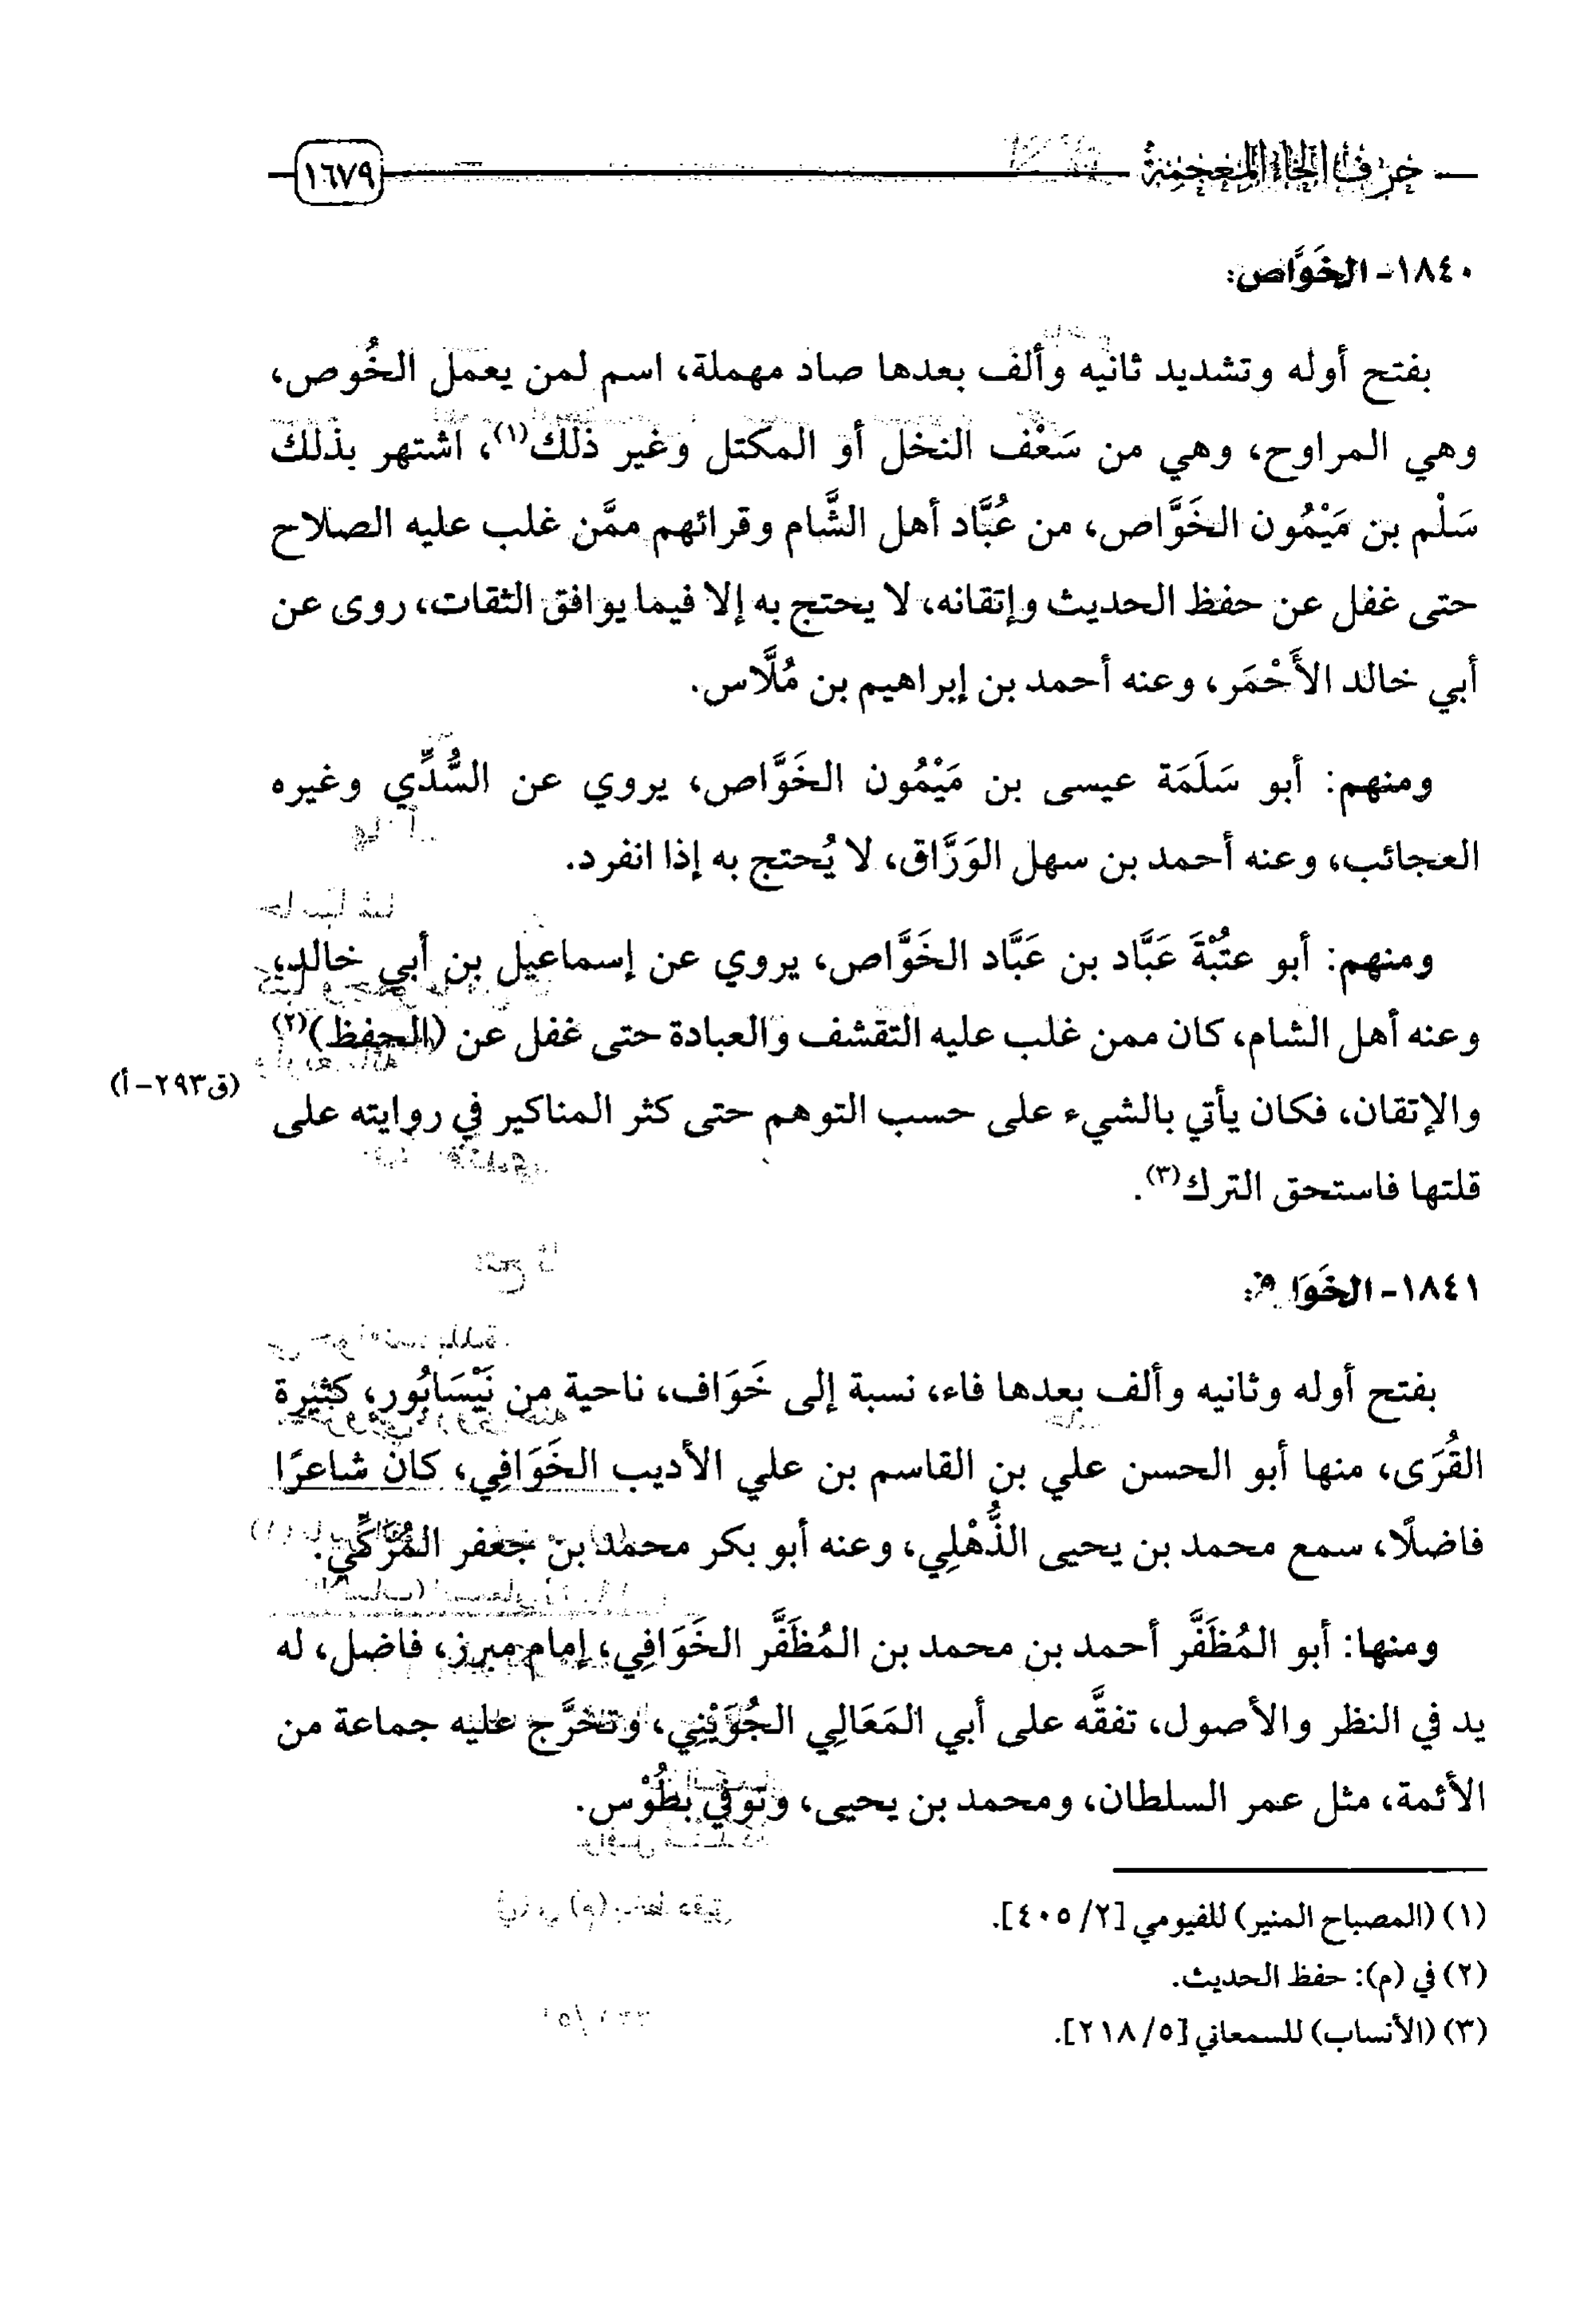 حرف الخاء المعجمة
١٦٧٩
١٨٤٠- الخَوَّاص:
بفتح أوله وتشديد ثانيه وألف بعدها صاد مهملة، اسم لمن يعمل الخُوص،
وهي المراوح، وهي من سَعْف النخل أو المكتل وغير ذلك(١)، اشتهر بذلك
سَلْم بن مَيْمُون الخَوَّاص، من عُبَّاد أهل الشَّام وقرائهم ممَّن غلب عليه الصلاح
حتى غفل عن حفظ الحديث وإتقانه، لا يحتج به إلا فيما يوافق الثقات، روى عن
أبي خالد الأَحْمَر، وعنه أحمد بن إبراهيم بن مُلَّاس.
ومنهم: أبو سَلَمَة عيسى بن مَيْمُون الخَوَّاص، يروي عن السُّدِّي وغيره
العجائب، وعنه أحمد بن سهل الوَرَّاق، لا يُحتج به إذا انفرد.
ومنهم: أبو عتُبْةَ عَبَّاد بن عَبَّاد الخَوَّاص، يروي عن إسماعيل بن أبي خالد،
وعنه أهل الشام، كان ممن غلب عليه التقشف والعبادة حتى غفل عن (الحفظ)(٢)
(ق٢٩٣-أ)
والإتقان، فكان يأتي بالشيء على حسب التوهم حتى كثر المناكير في روايته على
قلتها فاستحق الترك(٣).
١٨٤١-
بفتح أوله وثانيه وألف بعدها فاء، نسبة إلى خَوَاف، ناحية من نَيْسَابُور، كثيرة
القُرَى، منها أبو الحسن علي بن القاسم بن علي الأديب الخَوَافِي، كان شاعرًا
فاضلًا، سمع محمد بن يحيى الذُّهْلِي، وعنه أبو بكر محمد بن جعفر المُزَكِّي.
ومنها: أبو المُظَفَّر أحمد بن محمد بن المُظَفَّر الخَوَافِي، إمام مبرز، فاضل، له
يد في النظر والأصول، تفقَّه على أبي المَعَالِي الجُوَيْنِي، وتخرَّج عليه جماعة من
الأئمة، مثل عمر السلطان، ومحمد بن يحيى، وتوفي بطُوْس.
(١) (المصباح المنير) للفيومي [٢/ ٤٠٥].
(٢) في (م): حفظ الحديث.
(٣) (الأنساب) للسمعاني [٥/ ٢١٨].